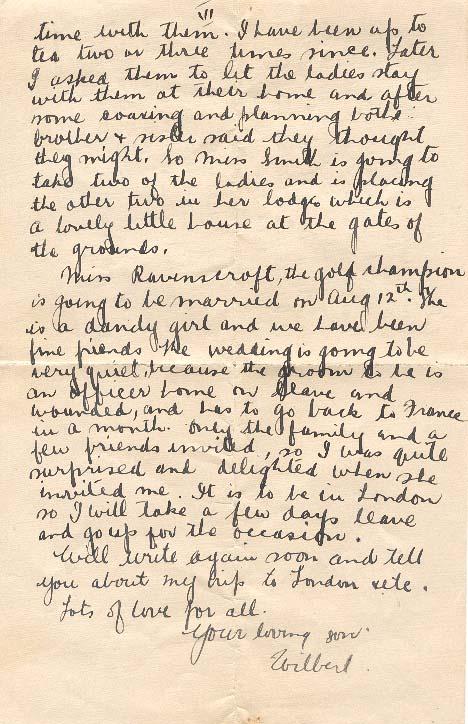 VII
time with them. I have been up to
tea two or three times since. Later
I asked them to let the ladies stay
with them at their home and after
some coaxing and planning both
brother & sister said they thought
they might. So Miss Smith is going to
take two of the ladies and is placing
the other two in her lodge which is
a lovely little house at the gates of
the grounds.
Miss Ravenscroft, the golf champion
is going to be married on Aug 12th. She
is a dandy girl and we have been
fine friends the wedding is going to be
very quiet, because the groom to be is
an officer home on leave and
wounded, and has to go back to France
in a month. Only the family and a
few friends invited, so I was quite
surprised and delighted when she
invited me. It is to be in London
so I will take a few days leave
and go up for the occasion.
Will write again soon and tell
you about my trip to London etc.
Lots of love for all.
Your loving son.
Wilbert.